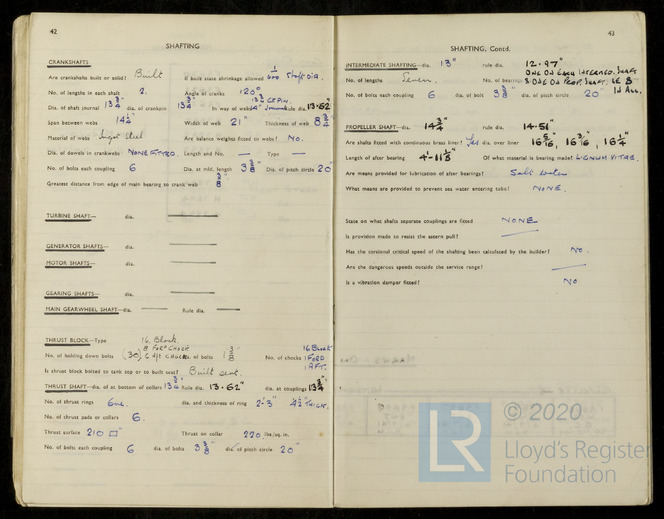 42
SHAFTING
CRANKSHAFTS
Are crankshafts built or solid? Built If built state shrinkage allowed 1/600 Shaft Dia.
No. of lengths in each shaft 2. Angle of cranks 120°
Dia. of shaft journal 13 3/4" dia. of crankpin 13 3/4" In way of webs Rule dia. 13.62
Span between webs 14 1/2" Width of web 21" Thickness of web 8 3/4
Material of webs Ingot Steel Are balance weights fitted to webs? No.
Dia. of dowels in crankwebs NONE FITTED. Length and No. — Type —
No. of bolts each coupling 6 Dia. at mid. length 3 3/8" Dia. of pitch circle 20"
Greatest distance from edge of main bearing to crank web
TURBINE SHAFT— dia. —
GENERATOR SHAFT— dia. —
MOTOR SHAFTS— dia. —
GEARING SHAFTS— dia. —
MAIN GEARWHEEL SHAFT—dia. — Rule dia. —
THRUST BLOCK—Type
16. Block.
8 For'd Chock
No. of holding down bolts (30) 6 Aft Chock dia. of bolts 1 3/8" No. of chocks 16 Block 1 FORD 1 AFT.
Is thrust block bolted to tank top or to built seat? Built seat.
THRUST SHAFT—dia. of at bottom of collars 13 3/4" Rule dia. 13.62" dia. at couplings 13 3/4"
No. of thrust rings One. dia. and thickness of ring 2'-3" 4 1/2" THICK.
No. of thrust pads or collars 6.
Thrust surface 210 □" Thrust on collar 220 lbs./sq. in.
No. of bolts each coupling 6 dia. of bolts 3 3/8" dia. of pitch circle 20"
43
SHAFTING, Contd.
INTERMEDIATE SHAFTING—dia. 13" rule dia. 12.97"
No. of lengths Seven. No. of bearings ONE ON EACH INTERMED. SHAFT & ONE ON PROP. SHAFT. IE 8 IN ALL.
No. of bolts each coupling 6 dia. of bolt 3 3/8" dia. of pitch circle 20"
PROPELLER SHAFT—dia. 14 3/4" rule dia. 14.51"
Are shafts fitted with continuous brass liner? Yes dia. over liner 16 5/16", 16 3/16", 16 1/4"
Length of after bearing Of what material is bearing made? LIGNUM VITAE.
Are means provided for lubrication of after bearings? Salt water
What means are provided to prevent sea water entering tube? NONE.
State on what shafts separate couplings are fitted NONE
Is provision made to resist the astern pull? —
Has the torsional critical speed of the shafting been calculated by the builder? No.
Are the dangerous speeds outside the service range? —
Is a vibration damper fitted? No
LR
© 2020
Lloyd's Register
Foundation